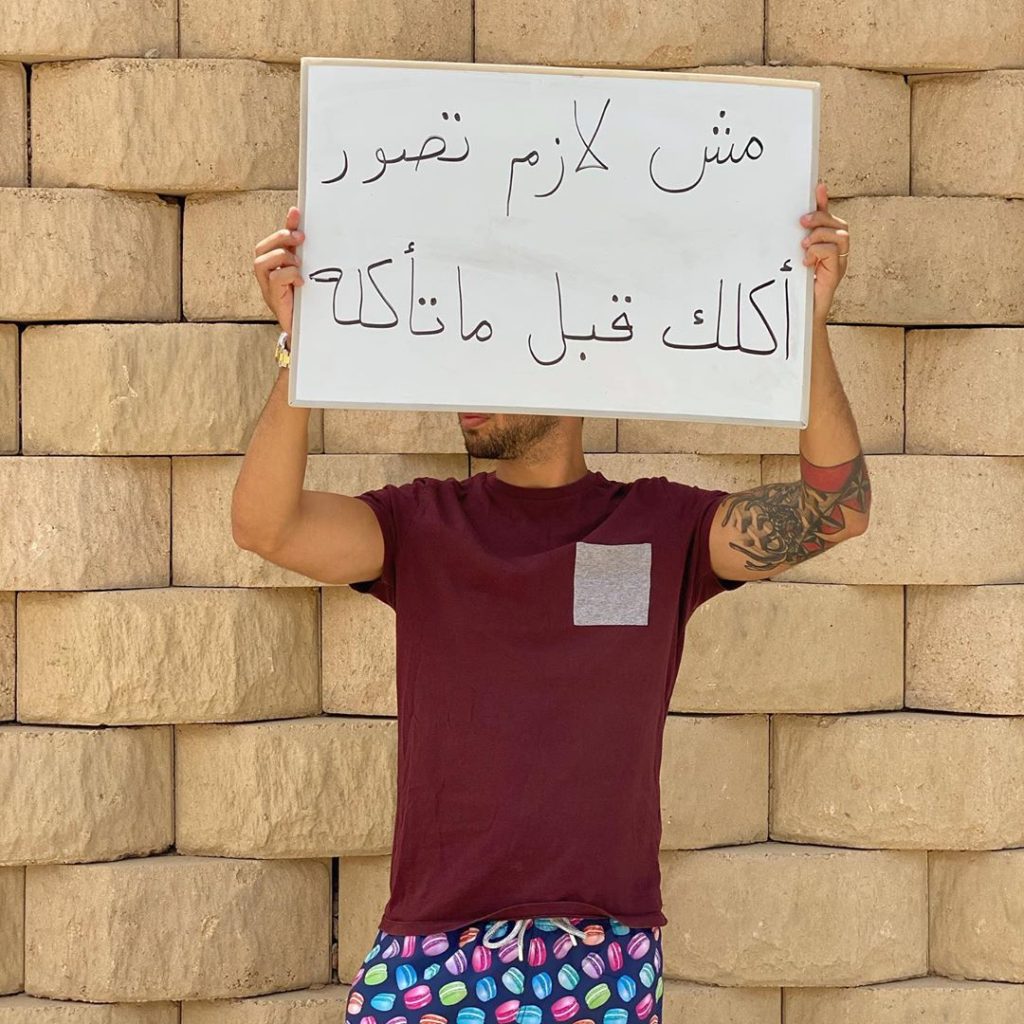 مش لازم تصور
أكلك قبل ما تأكله